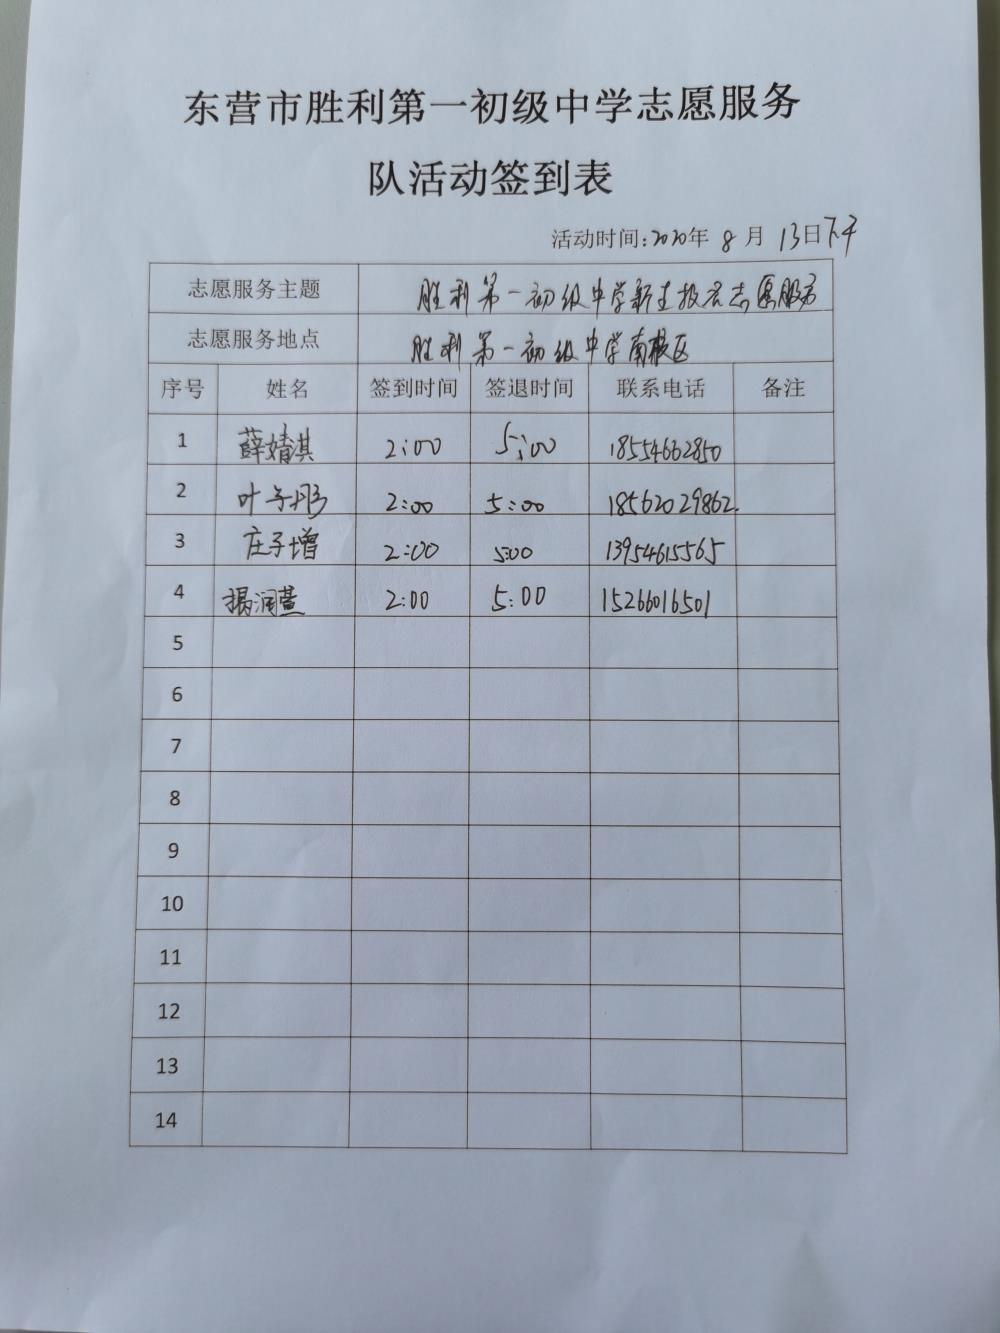 东营市胜利第一初级中学志愿服务
队活动签到表
活动时间:2020年 8 月 13日下午
志愿服务主题 胜利第一初级中学新生报名志愿服务
志愿服务地点 胜利第一初级中学南校区
序号 姓名 签到时间 签退时间 联系电话 备注
1 薛婧淇 2:00 5:00 18554662850
2 叶子彤 2:00 5:00 18562029862
3 庄子增 2:00 5:00 13954615565
4 2:00 5:00 15266016501
5
6
7
8
9
10
11
12
13
14